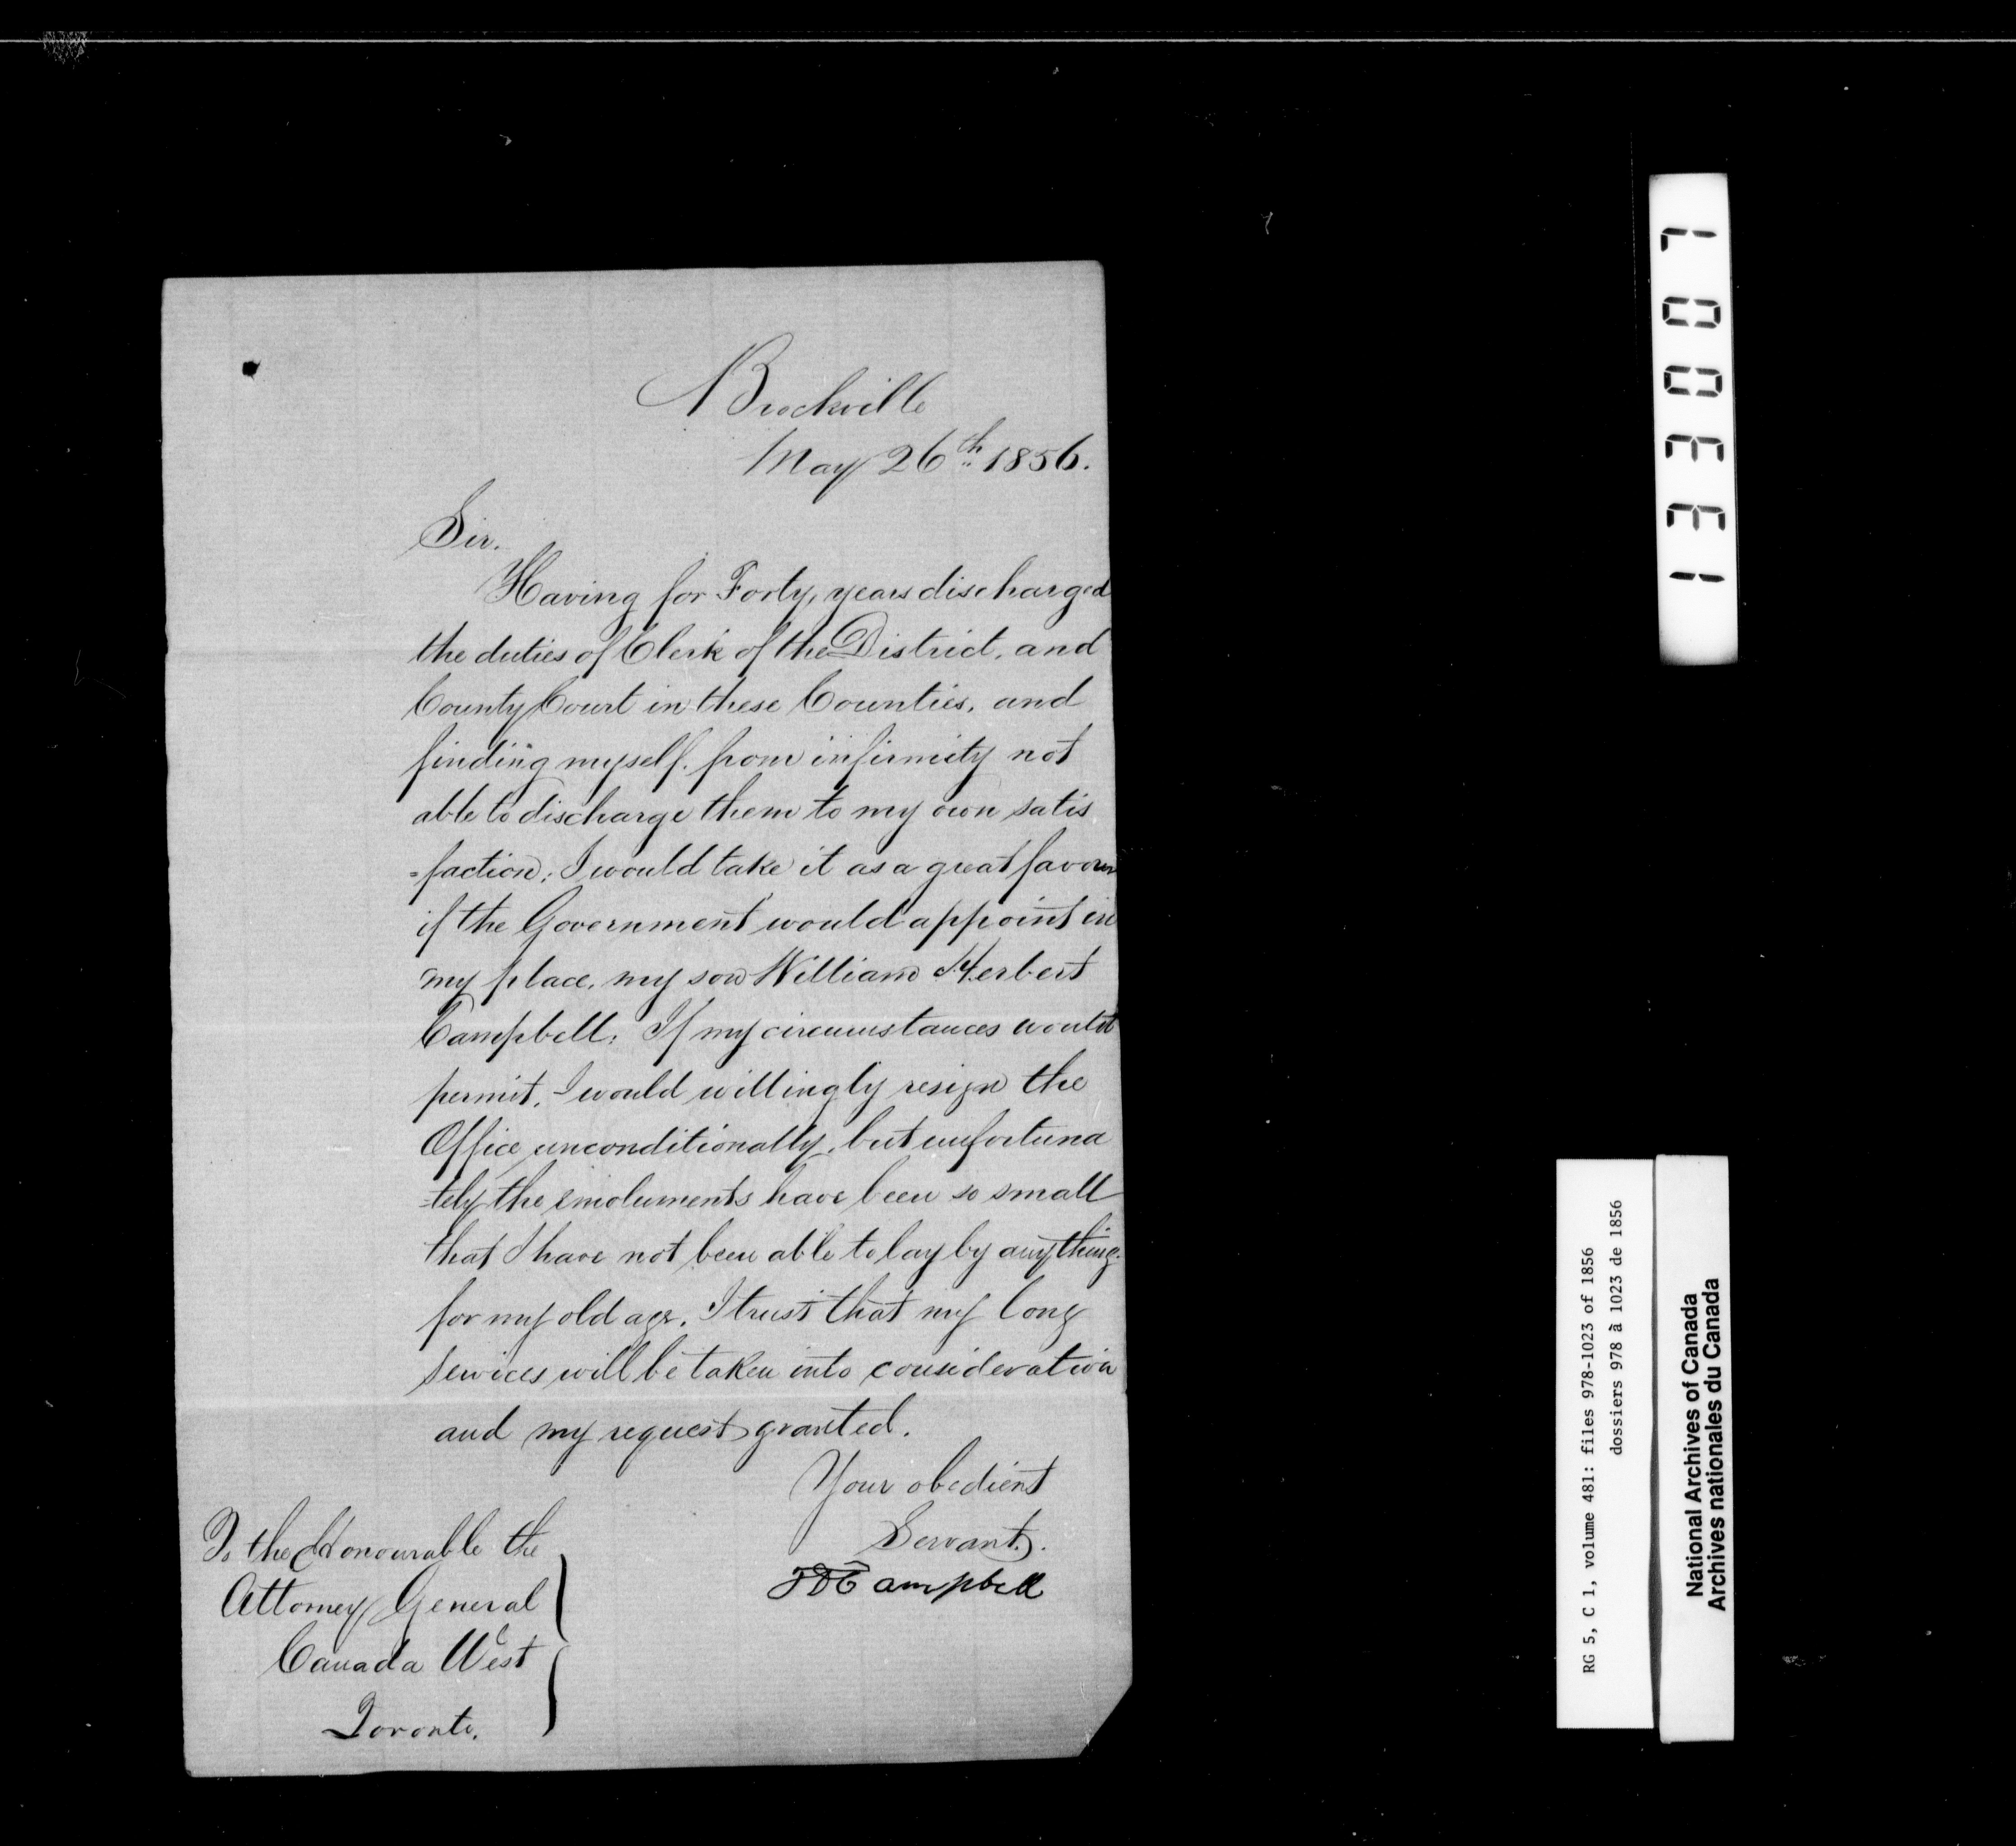 Brockville
May 26th 1856.
Sir.
Having for Forty, years discharged
the duties of Clerk of the District, and
County Court in these Counties, and
finding myself. from infirmity not
able to discharge them to my own satis
=faction; I would take it as a great favour
if the Government would appoint in
my place, my son William Herbert
Campbell; If my circumstances would
permit, I would willingly resign the
Office unconditionally, but unfortuna
-tely the emoluments have been so small
that I have not been able to lay by anything
for my old age. I trust that my long
services will be taken into consideration
and my request granted.
Your obedient
Servant.
Campbell
To the Honourable the
Attorney General
Canada West
Toronto.
133007
RG 5, C 1, volume 481: files 978-1023 of 1856
dossiers 978 à 1023 de 1856
National Archives of Canada
Archives nationales du Canada